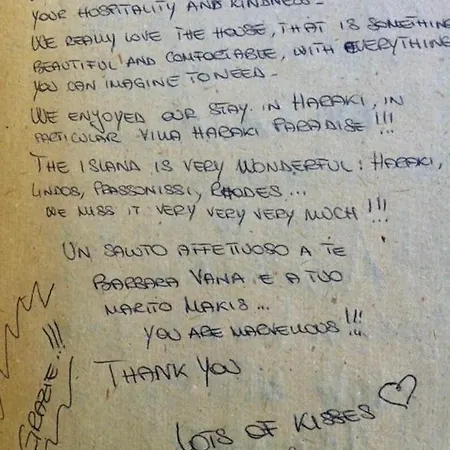 YOUR HOSPITALITY AND KINDNESS-
WE REALLY LOVE THE HOUSE, THAT IS SOMETHING
BEAUTIFUL AND COMFORTABLE, WITH EVERYTHING
YOU CAN IMAGINE TO NEED-
WE ENYOYED OUR STAY IN HARAKI, IN
PARTICULAR VILLA HARAKI PARADISE!!!
THE ISLAND IS VERY WONDERFUL: HARAKI,
LINDOS, PRASSONISSI, RHODES...
WE MISS IT VERY VERY VERY MUCH!!!
UN SALUTO AFFETTUOSO A TE
BARBARA VANA E A TUO
MARITO MAKIS...
YOU ARE MARVELLOUS!!!
THANK YOU
LOTS OF KISSES
GRAZIE...!!!